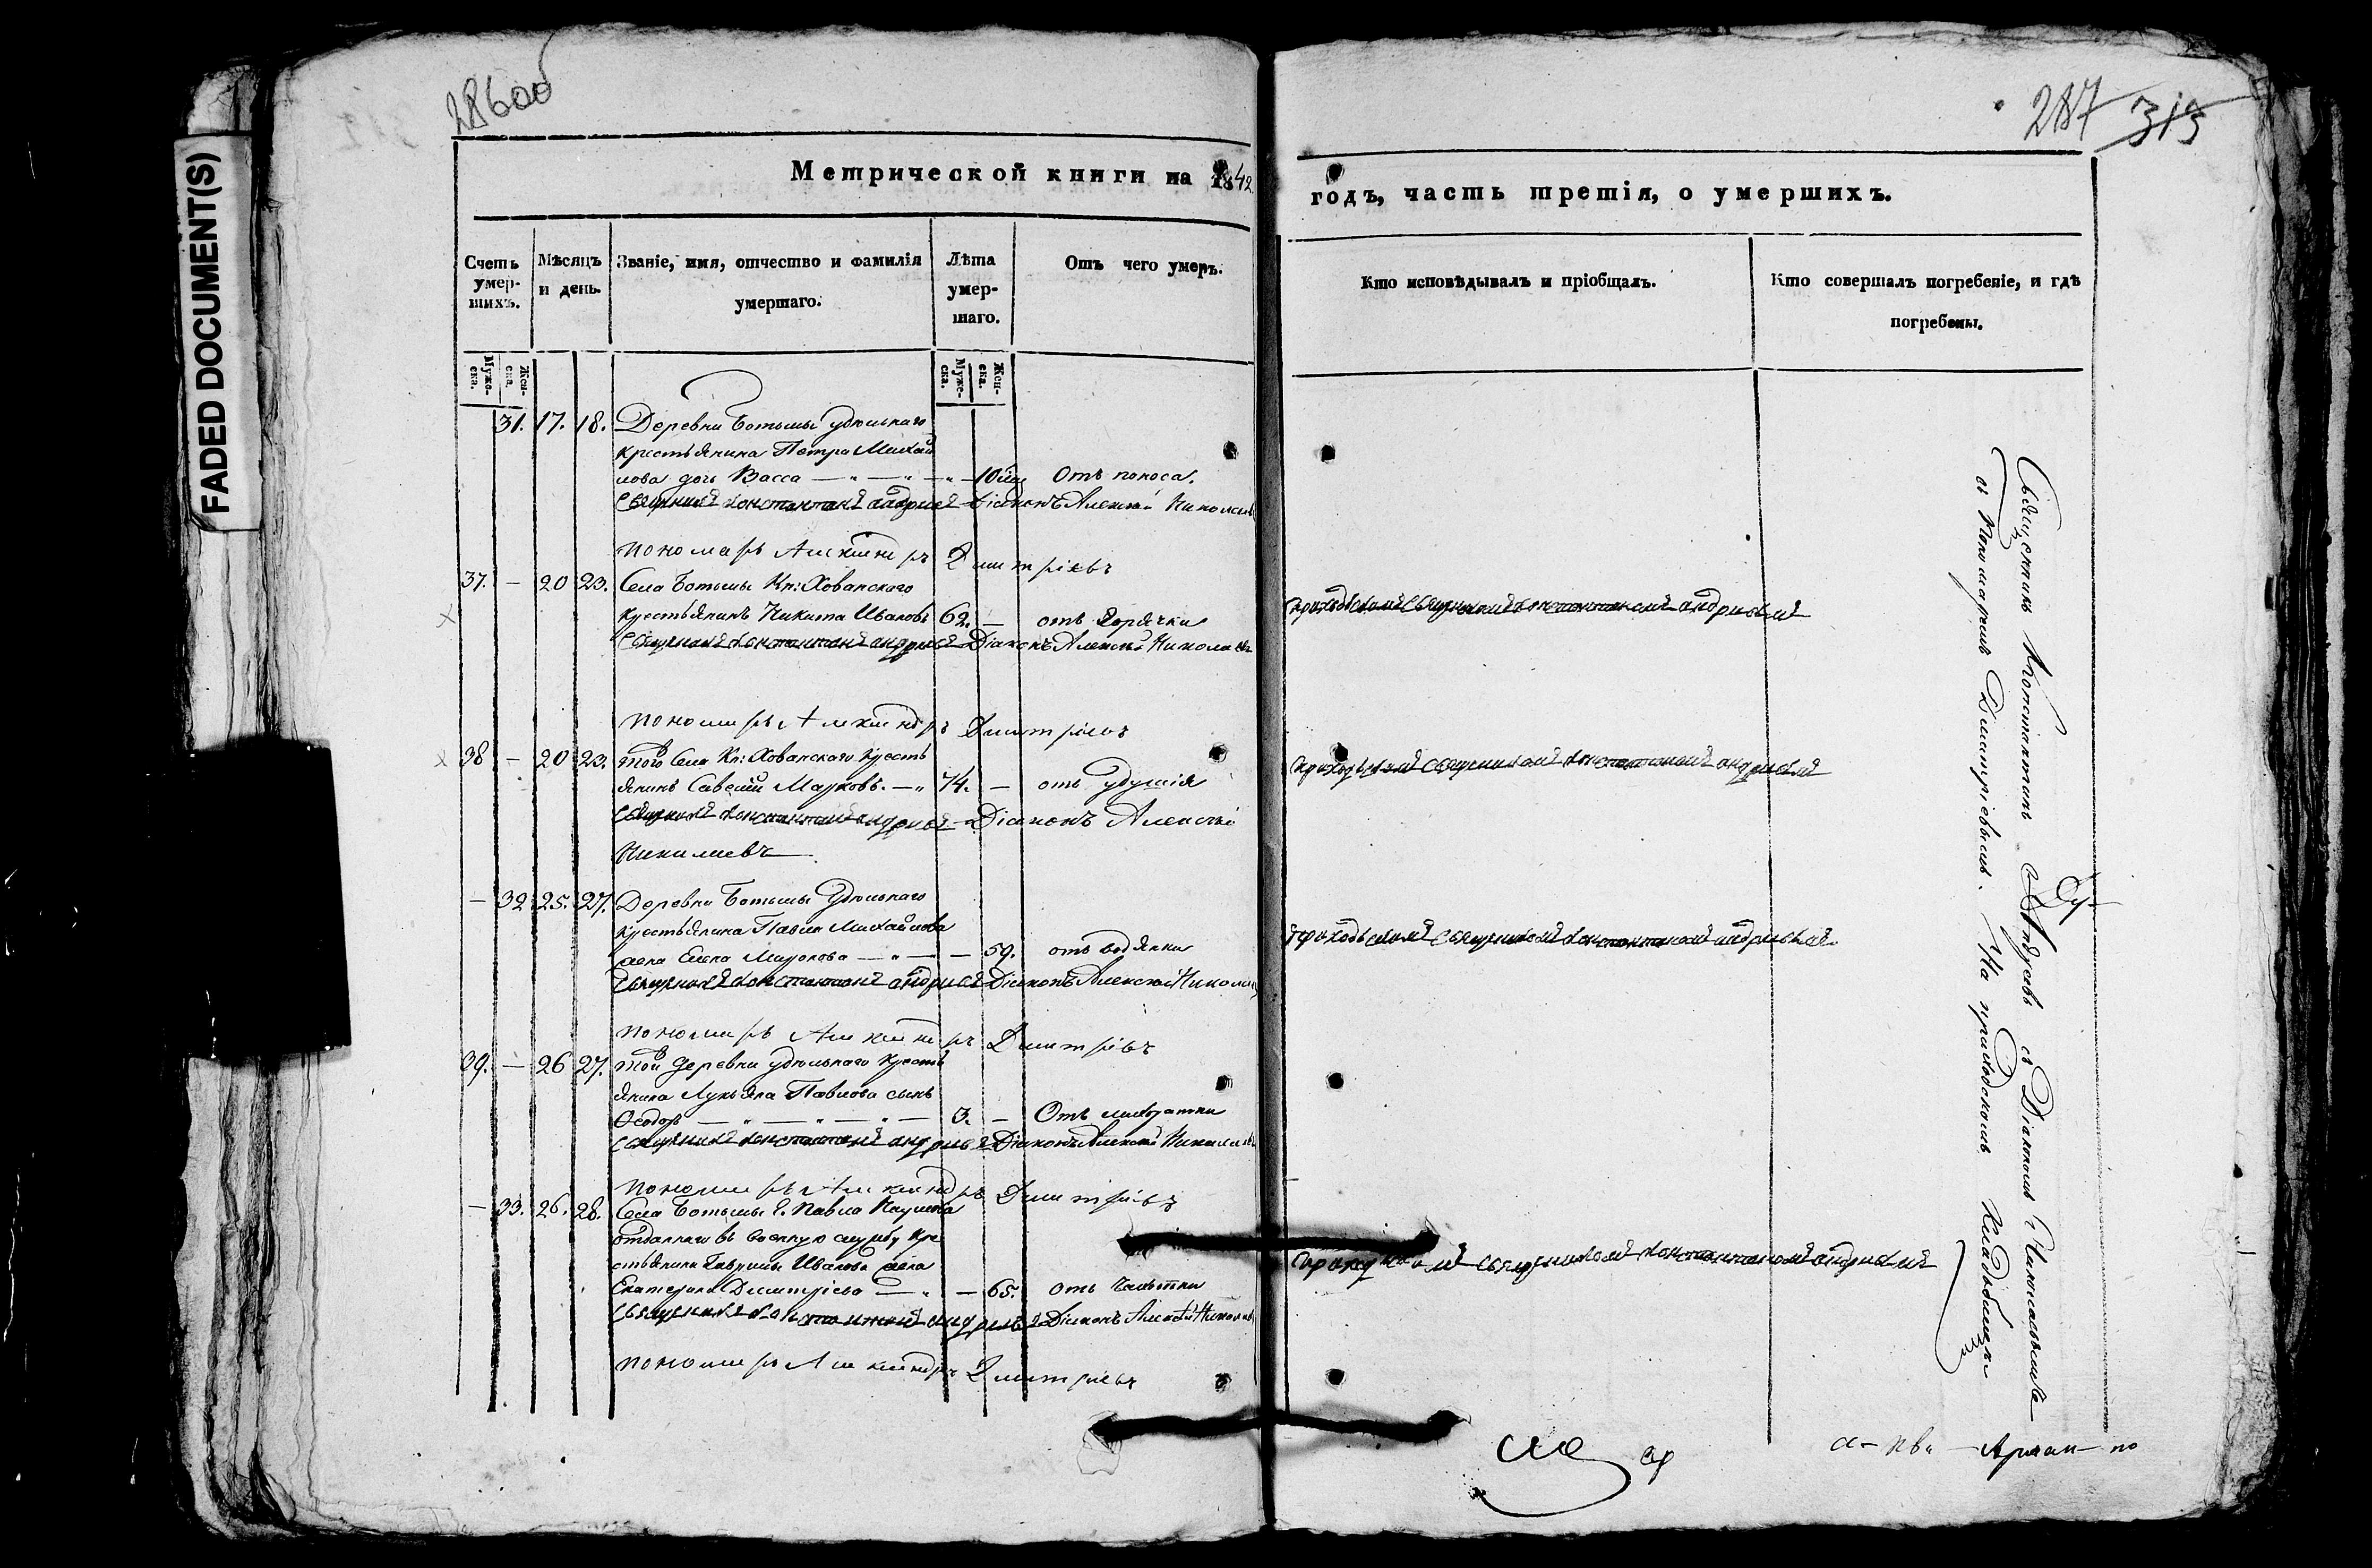 FADED DOCUMENT(S)
28600
287 313
Метрической книги на 1842
годъ, часть третія, о умершихъ.
Счетъ умер-шихъ.
Мѣсяцъ и день.
Званіе, имя, отчество и фамилія умершаго.
Лѣта умер-шаго.
Отъ чего умеръ.
Кто исповѣдывалъ и пріобщалъ.
Кто совершалъ погребеніе, и гдѣ погребены.
Муже-ска.
Жен-ска.
Муже-ска.
Жен-ска.
31. 17. 18. Деревни Ботьмы удѣльнаго
крестьянина Петра Михай
лова дочь Васса 10 Отъ поноса.
Священникъ Константинъ Андреевъ Діаконъ Алексѣй Николаевъ
Пономарь Александръ Димитріевъ
37. – 20 23. Села Ботьмы Кн: Хованскаго
крестьянинъ Никита Ивановъ 62. – отъ горячки
приходскимъ священникомъ Константиномъ Андреевымъ
Священникъ Константинъ Андреевъ Діаконъ Алексѣй Николаевъ
Пономарь Александръ Димитріевъ
38 – 20 23. того села Кн: Хованскаго кресть
янинъ Савелій Марковъ. 74. – отъ удушія
приходскимъ священникомъ Константиномъ Андреевымъ
Священникъ Константинъ Андреевъ Діаконъ Алексѣй
Николаевъ
– 32 25. 27. Деревни Ботьмы Удѣльнаго
крестьянина Павла Михайлова
жена Елена Миронова – 59. отъ водянки
приходскимъ священникомъ Константиномъ Андреевымъ.
Священникъ Константинъ Андреевъ Діаконъ Алексѣй Николаевъ
Пономарь Александръ Димитріевъ
39. – 26 27. той деревни удѣльнаго кресть
янина Лукьяна Павлова сынъ
Ѳеодоръ 3. – Отъ лихоратки
Священникъ Константинъ Андреевъ Діаконъ Алексѣй Николаевъ
Пономарь Александръ Димитріевъ
– 33. 26. 28. Села Ботьмы Г. Павла Наумова
отданнаго въ военную службу кре
стьянина Гаврилы Иванова жена
Екатерина Димитріева – 65. отъ чахотки
приходскимъ священникомъ Константиномъ Андреевымъ
Священникъ Константинъ Андреевъ Діаконъ Алексѣй Николаевъ
Пономарь Александръ Димитріевъ
Священникъ Константинъ Андреевъ съ Діакономъ Николаевымъ
и Пономаремъ Димитріевымъ. На приходскомъ кладбищѣ